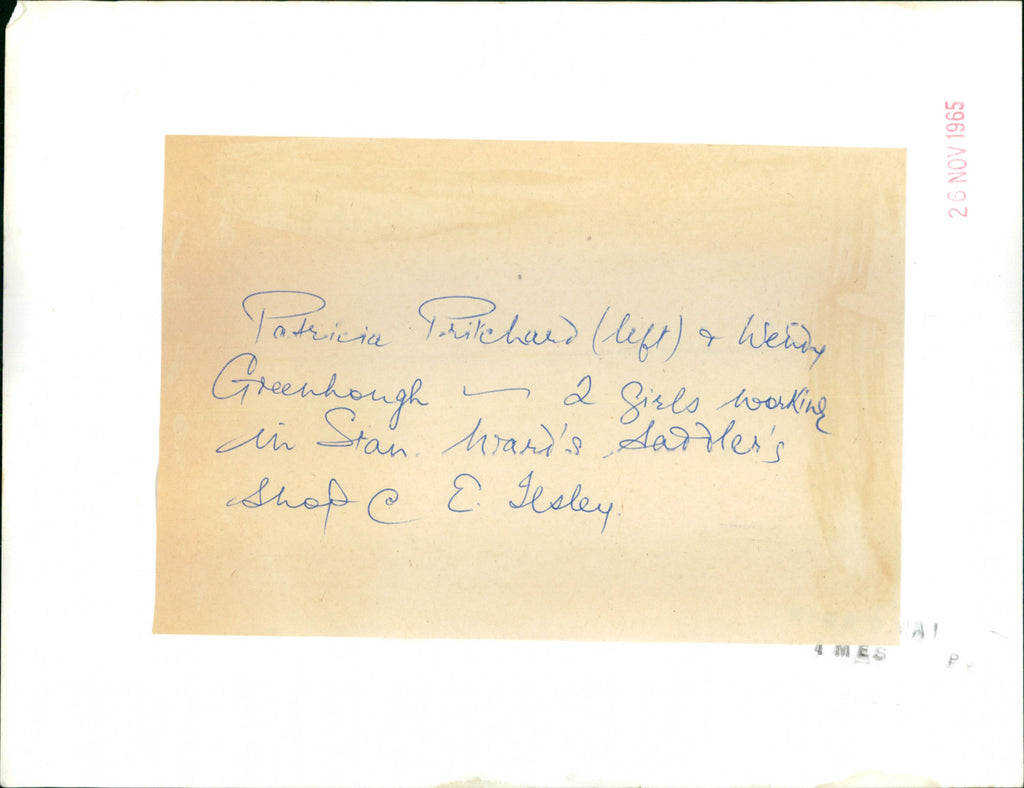 26 NOV 1965
Patricia Pritchard (left) & Wendy
Greenhough — 2 girls working
in Stan. Ward's Saddler's
Shop @ E. Ilsley.